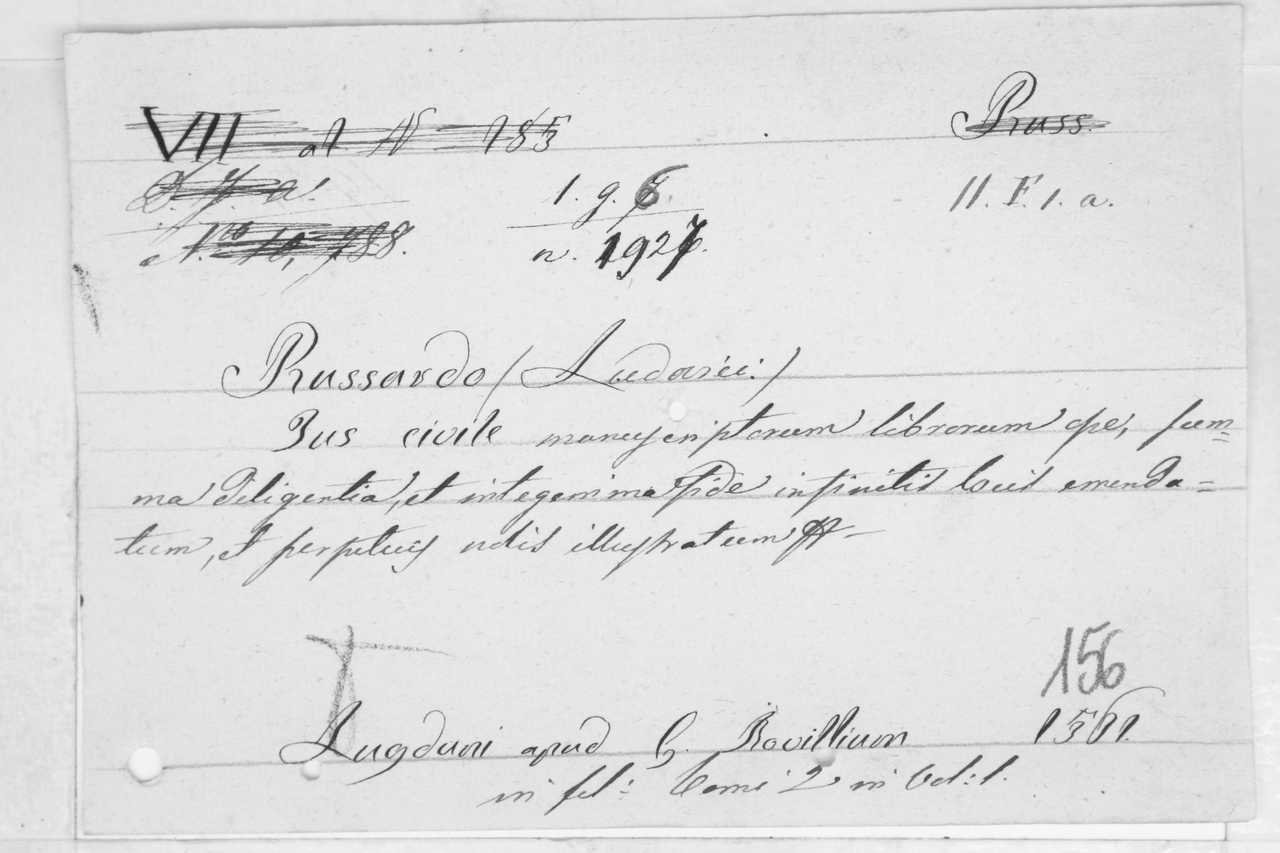 VII at N 185
Russ.
1. g. 6.
II. F. 1. a.
n. 1927.
Russardo (Ludovici.)
Jus civile manuscriptorum librorum ope, sum=
ma diligentia, et integerrima fide infinitis locis emenda=
tum, et perpetuis notis illustratum
156
Lugduni apud G. Rovillium 1561.
in fol: tomi 2 in vol: 1.